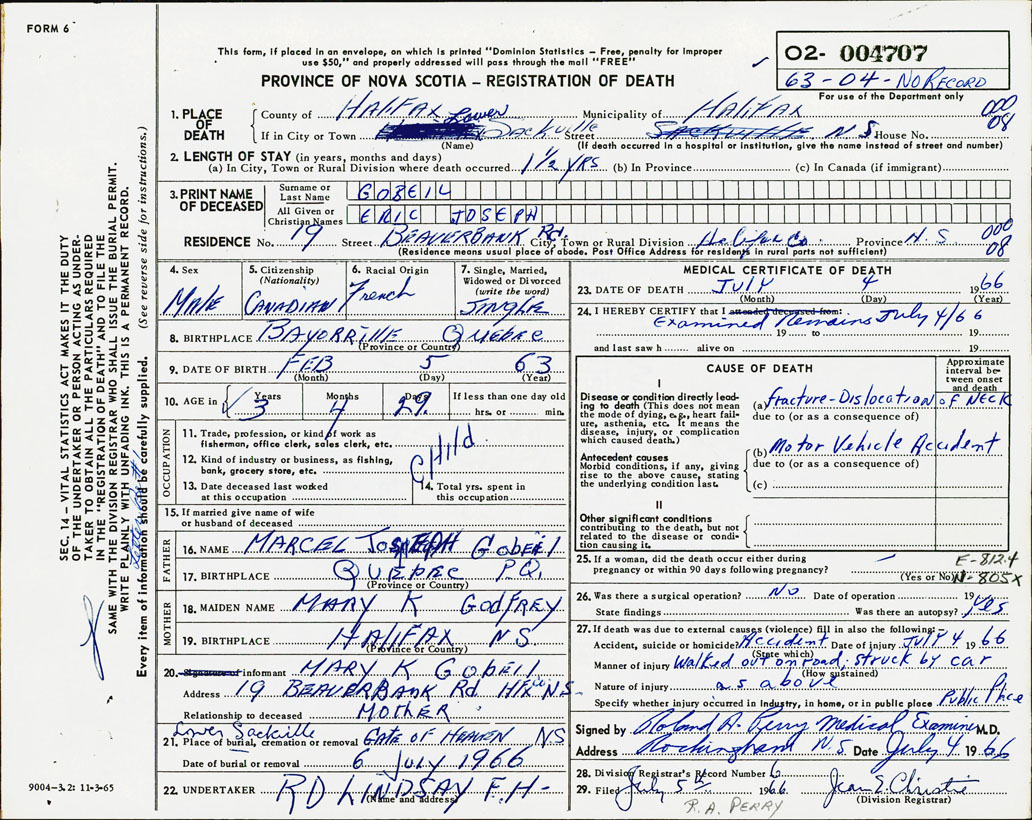 FORM 6
This form, if placed in an envelope, on which is printed "Dominion Statistics – Free, penalty for improper
use $50," and properly addressed will pass through the mail "FREE"
PROVINCE OF NOVA SCOTIA – REGISTRATION OF DEATH
02- 004707
63-04-NO RECORD
For use of the Department only
SEC. 14 – VITAL STATISTICS ACT MAKES IT THE DUTY
OF THE UNDERTAKER OR PERSON ACTING AS UNDER-
TAKER TO OBTAIN ALL THE PARTICULARS REQUIRED
IN THE "REGISTRATION OF DEATH" AND TO FILE THE
SAME WITH THE DIVISION REGISTRAR WHO SHALL ISSUE BURIAL PERMIT.
WRITE PLAINLY WITH UNFADING INK. THIS IS A PERMANENT RECORD.
Every item of information should be carefully supplied. (See reverse side for instructions.)
1. PLACE OF DEATH
County of HALIFAX Municipality of HALIFAX 000
If in City or Town Lower SACKVILLE Street SACKVILLE N S House No. 08
(Name) (If death occurred in a hospital or institution, give the name instead of street and number)
2. LENGTH OF STAY (in years, months and days)
(a) In City, Town or Rural Division where death occurred 1½ YRS (b) In Province (c) In Canada (if immigrant)
3. PRINT NAME OF DECEASED
Surname or Last Name GOBEIL
All Given or Christian Names ERIC JOSEPH
RESIDENCE No. 19 Street BEAVERBANK Rd. City, Town or Rural Division Halifax Co. Province N.S 000
(Residence means usual place of abode. Post Office Address for residents in rural parts not sufficient) 08
4. Sex MALE
5. Citizenship (Nationality) CANADIAN
6. Racial Origin French
7. Single, Married, Widowed or Divorced (write the word) SINGLE
8. BIRTHPLACE QUEBEC
(Province or Country)
9. DATE OF BIRTH FEB 5 63
(Month) (Day) (Year)
10. AGE in Years 3 Months 4 Days 29 If less than one day old hrs. or min.
OCCUPATION
11. Trade, profession or kind of work as fisherman, office clerk, sales clerk, etc.
12. Kind of industry or business, as fishing, bank, grocery store, etc.
CHILD
13. Date deceased last worked at this occupation
14. Total yrs. spent in this occupation
15. If married give name of wife or husband of deceased
FATHER
16. NAME MARCEL JOSEPH GOBEIL
17. BIRTHPLACE QUEBEC P.Q.
(Province or Country)
MOTHER
18. MAIDEN NAME MARY K GODFREY
19. BIRTHPLACE HALIFAX NS
(Province or Country)
20. Signature of informant MARY K GOBEIL
Address 19 BEAVERBANK Rd Hfx Co NS
Relationship to deceased MOTHER
Lower Sackville
21. Place of burial, cremation or removal GATE OF HEAVEN NS
Date of burial or removal 6 JULY 1966
22. UNDERTAKER RD LINDSAY F.H-
(Name and address)
9004-3.2: 11-3-65
MEDICAL CERTIFICATE OF DEATH
23. DATE OF DEATH JULY 4 1966
(Month) (Day) (Year)
24. I HEREBY CERTIFY that I attended deceased from:
Examined Remains July 4/66
19 to 19
and last saw h alive on 19
CAUSE OF DEATH
Approximate interval between onset and death
I
Disease or condition directly leading to death (This does not mean the mode of dying, e.g., heart failure, asthenia, etc. It means the disease, injury, or complication which caused death.)
(a) Fracture-Dislocation of NECK
due to (or as a consequence of)
Antecedent causes
Morbid conditions, if any, giving rise to the above cause, stating the underlying condition last.
(b) Motor Vehicle Accident
due to (or as a consequence of)
(c)
II
Other significant conditions contributing to the death, but not related to the disease or condition causing it.
25. If a woman, did the death occur either during pregnancy or within 90 days following pregnancy? (Yes or No)
E-812.4
N-805X
26. Was there a surgical operation? NO Date of operation 19
State findings Was there an autopsy? yes
27. If death was due to external causes (violence) fill in also the following:
Accident, suicide or homicide? Accident Date of injury JULY 4 1966
(State which)
Manner of injury Walked out on road; struck by car
(How sustained)
Nature of injury as above
Specify whether injury occurred in industry, in home, or in public place Public Place
Signed by Roland A. Perry Medical Examiner M.D.
Address Rockingham N.S. Date July 4 1966
28. Division Registrar's Record Number 6
29. Filed July 5th 1966 Jean E. Christie
(Division Registrar)
R.A. PERRY